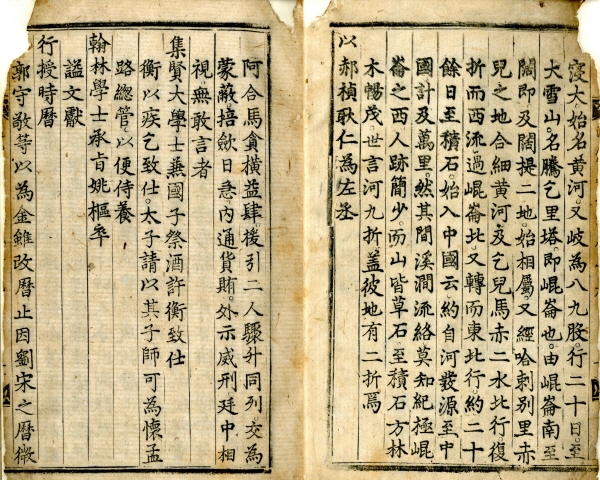 寖大始名黃河又岐為八九股行二十日至
大雪山名騰乞里塔即崐崙也由崐崙南至
闊即及闊提二地始相屬又經哈剌別里赤
兒之地合細黃河及乞兒馬赤二水北行復
折而西流過崐崙北又轉而東北行約二十
餘日至積石始入中國云約自河發源至中
國計及萬里然其間溪澗流絡莫知紀極崐
崙之西人跡簡少而山皆草石至積石方林
木暢茂世言河九折盖彼地有二折焉
以郝禎耿仁為左丞
阿合馬貪橫益肆援引二人驟升同列交為
蒙蔽掊歛日急內通貨賄外示威刑廷中相
視無敢言者
集賢大學士兼國子祭酒許衡致仕
衡以疾乞致仕太子請以其子師可為懷孟
路緫管以便侍養
翰林學士承旨姚樞卒
謚文獻
行授時曆
郭守敬等以為金雖改曆止因劉宋之曆微